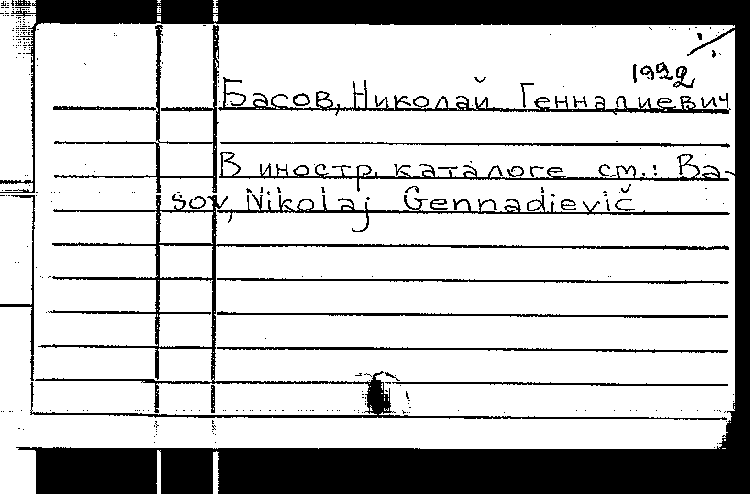 1922
Басов, Николай Геннадиевич
В иностр. каталоге см.: Ba-
sov, Nikolaj Gennadievič